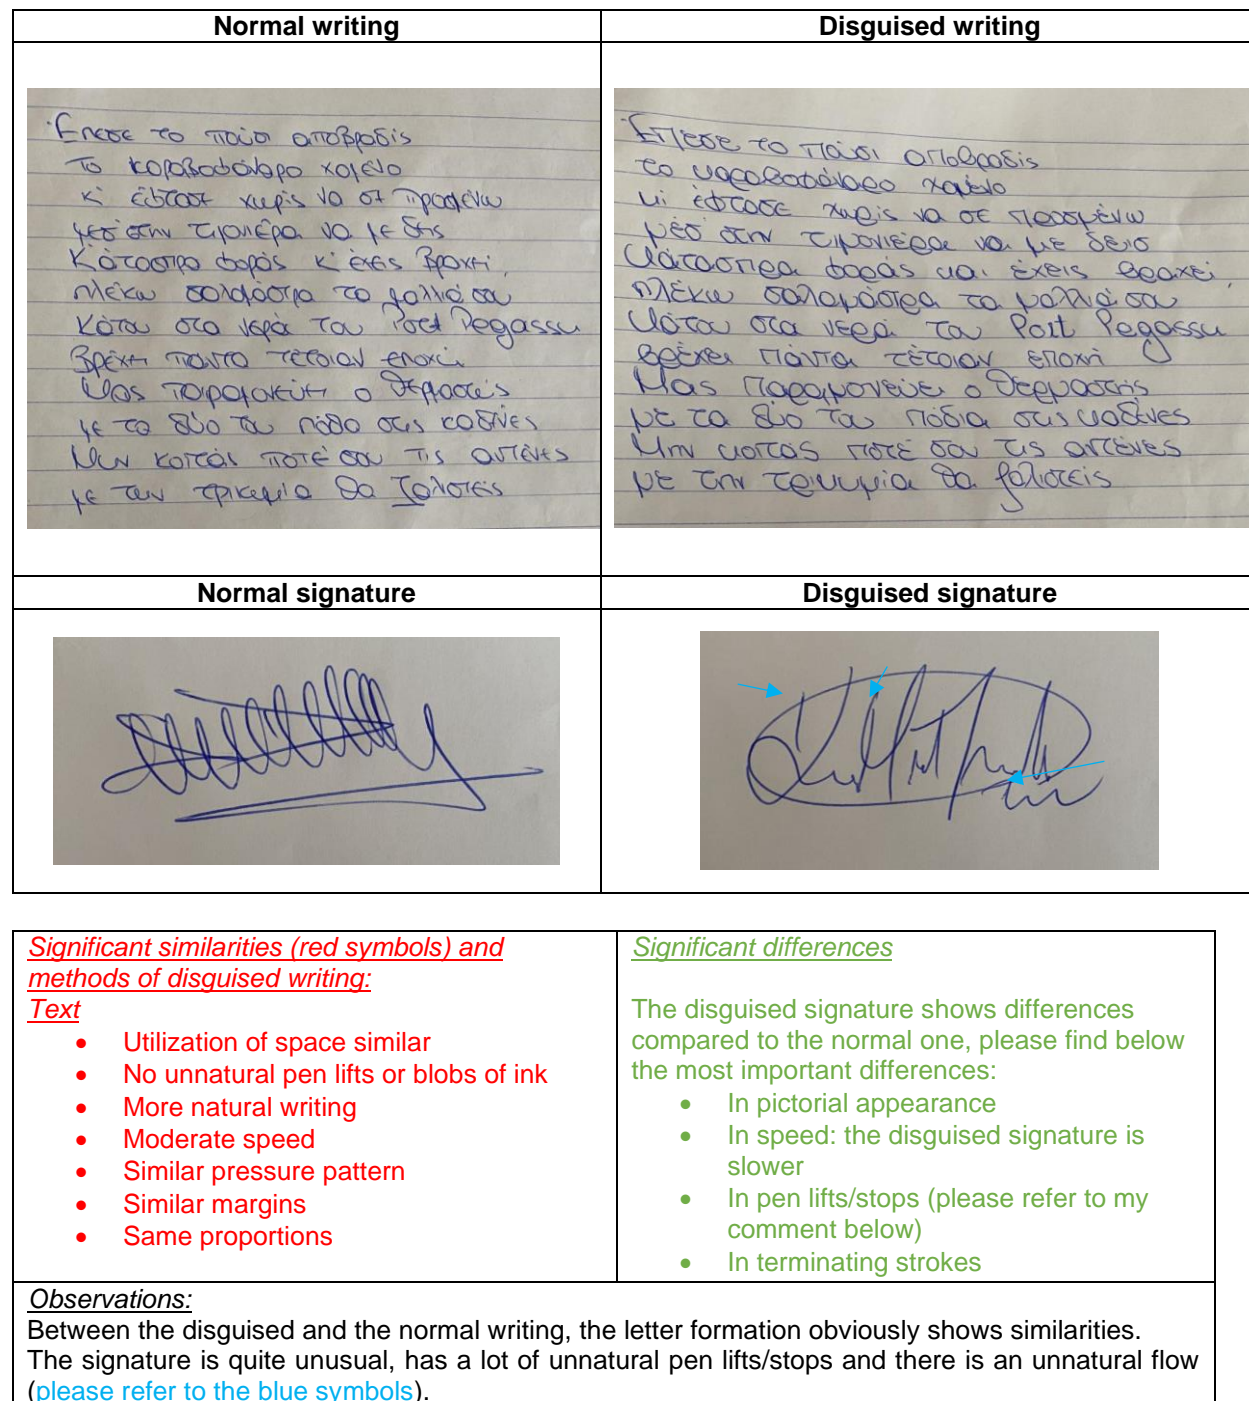 Normal writing
Disguised writing
Έπεσε το πούσι αποβραδίς
Το καραβοφάναρο χαμένο
κι έφτασε χωρίς να σε προσμένω
μες στην τιμονιέρα να με δεις
Κάτασπρα φοράς κι έχεις βραχεί,
πλέκω σαλαμάστρα τα μαλλιά σου
Κάτου στα νερά του Port Pegassu
Βρέχει πάντα τέτοιαν εποχή
Μας παραμονεύει ο θερμαστής
με τα δύο του πόδια στις καδένες
Μην κοιτάς ποτέ σου τις αντένες
με την τρικυμία θα ζαλιστείς
Έπεσε το πούσι αποβραδίς
το καραβοφάναρο χαμένο
κι έφτασε χωρίς να σε προσμένω
μέσ στην τιμονιέρα να με δεισ
Κάτασπρα φοράς και έχεις βραχεί,
πλέκω σαλαμάστρα τα μαλλιά σου
Κάτου στα νερά του Port Pegassu
βρέχει πάντα τέτοιαν εποχή
Μας παραμονεύει ο θερμαστής
με τα δύο του πόδια στις καδένες
Μην κοιτάς ποτέ σου τις αντένες
με την τρικυμία θα ζαλιστείς
Normal signature
Disguised signature
Significant similarities (red symbols) and
methods of disguised writing:
Text
• Utilization of space similar
• No unnatural pen lifts or blobs of ink
• More natural writing
• Moderate speed
• Similar pressure pattern
• Similar margins
• Same proportions
Significant differences
The disguised signature shows differences
compared to the normal one, please find below
the most important differences:
• In pictorial appearance
• In speed: the disguised signature is
slower
• In pen lifts/stops (please refer to my
comment below)
• In terminating strokes
Observations:
Between the disguised and the normal writing, the letter formation obviously shows similarities.
The signature is quite unusual, has a lot of unnatural pen lifts/stops and there is an unnatural flow
(please refer to the blue symbols).